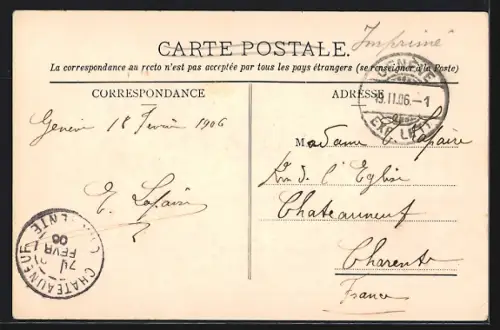 Imprimé
CARTE POSTALE.
La correspondance au recto n'est pas acceptée par tous les pays étrangers (se renseigner à la Poste)
CORRESPONDANCE
ADRESSE
GENÈVE
19.II.06.-1
EXP. LETT.
Genève 18 Fevrier 1906
E. Lafaire
Madame E. Lafaire
Rue de l'Eglise
Chateauneuf
Charente
France
CHATEAUNEUF
FEVR
06